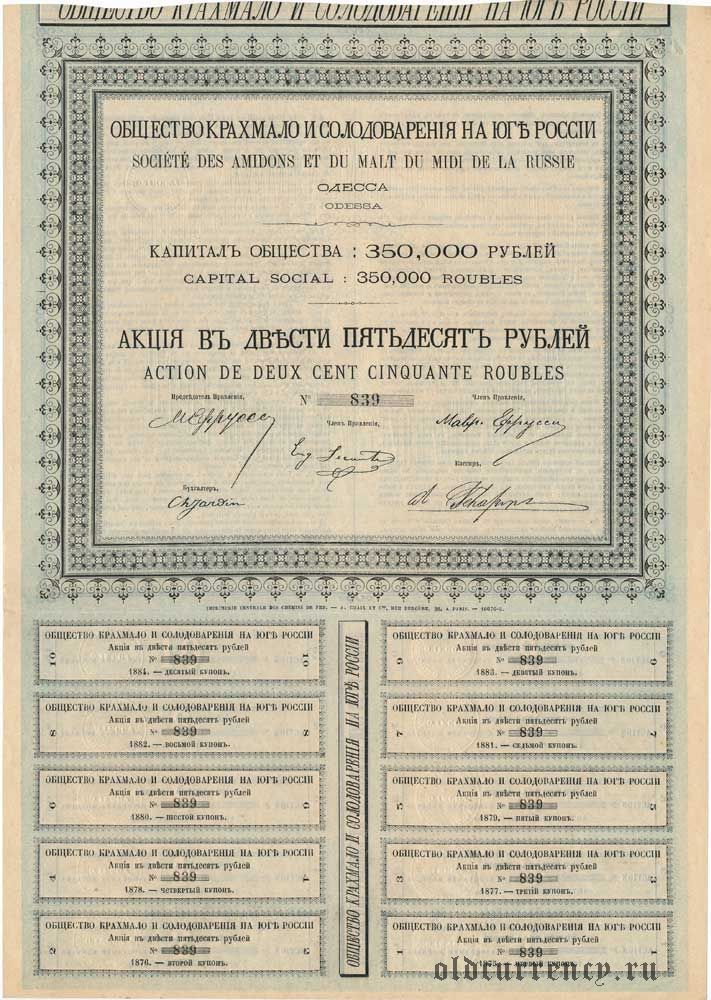 ОБЩЕСТВО КРАХМАЛО И СОЛОДОВАРЕНІЯ НА ЮГѢ РОССІИ
ОБЩЕСТВО КРАХМАЛО И СОЛОДОВАРЕНІЯ НА ЮГѢ РОССІИ
SOCIÉTÉ DES AMIDONS ET DU MALT DU MIDI DE LA RUSSIE
ОДЕССА
ODESSA
КАПИТАЛЪ ОБЩЕСТВА : 350,000 РУБЛЕЙ
CAPITAL SOCIAL : 350,000 ROUBLES
АКЦІЯ ВЪ ДВѢСТИ ПЯТЬДЕСЯТЪ РУБЛЕЙ
ACTION DE DEUX CENT CINQUANTE ROUBLES
Предсѣдатель Правленія,
№ 839
Членъ Правленія,
Членъ Правленія,
Мавр. Ефрусси
Кассиръ,
Бухгалтеръ,
Ch Jardin
IMPRIMERIE CENTRALE DES CHEMINS DE FER. — A. CHAIX ET Cie, RUE BERGÈRE, 20, A PARIS. — 16076-5.
ОБЩЕСТВО КРАХМАЛО И СОЛОДОВАРЕНІЯ НА ЮГѢ РОССІИ
Акція въ двѣсти пятьдесятъ рублей
10 № 839 10
1884. — ДЕСЯТЫЙ КУПОНЪ.
ОБЩЕСТВО КРАХМАЛО И СОЛОДОВАРЕНІЯ НА ЮГѢ РОССІИ
Акція въ двѣсти пятьдесятъ рублей
9 № 839 9
1883. — ДЕВЯТЫЙ КУПОНЪ.
ОБЩЕСТВО КРАХМАЛО И СОЛОДОВАРЕНІЯ НА ЮГѢ РОССІИ
Акція въ двѣсти пятьдесятъ рублей
8 № 839 8
1882. — ВОСЬМОЙ КУПОНЪ.
ОБЩЕСТВО КРАХМАЛО И СОЛОДОВАРЕНІЯ НА ЮГѢ РОССІИ
Акція въ двѣсти пятьдесятъ рублей
7 № 839 7
1881. — СЕДЬМОЙ КУПОНЪ.
ОБЩЕСТВО КРАХМАЛО И СОЛОДОВАРЕНІЯ НА ЮГѢ РОССІИ
Акція въ двѣсти пятьдесятъ рублей
6 № 839 6
1880. — ШЕСТОЙ КУПОНЪ.
ОБЩЕСТВО КРАХМАЛО И СОЛОДОВАРЕНІЯ НА ЮГѢ РОССІИ
Акція въ двѣсти пятьдесятъ рублей
5 № 839 5
1879. — ПЯТЫЙ КУПОНЪ.
ОБЩЕСТВО КРАХМАЛО И СОЛОДОВАРЕНІЯ НА ЮГѢ РОССІИ
Акція въ двѣсти пятьдесятъ рублей
4 № 839 4
1878. — ЧЕТВЕРТЫЙ КУПОНЪ.
ОБЩЕСТВО КРАХМАЛО И СОЛОДОВАРЕНІЯ НА ЮГѢ РОССІИ
Акція въ двѣсти пятьдесятъ рублей
3 № 839 3
1877. — ТРЕТІЙ КУПОНЪ.
ОБЩЕСТВО КРАХМАЛО И СОЛОДОВАРЕНІЯ НА ЮГѢ РОССІИ
Акція въ двѣсти пятьдесятъ рублей
2 № 839 2
1876. — ВТОРОЙ КУПОНЪ.
ОБЩЕСТВО КРАХМАЛО И СОЛОДОВАРЕНІЯ НА ЮГѢ РОССІИ
Акція въ двѣсти пятьдесятъ рублей
1 № 839 1
1875. — ПЕРВЫЙ КУПОНЪ.
ОБЩЕСТВО КРАХМАЛО И СОЛОДОВАРЕНІЯ НА ЮГѢ РОССІИ
oldcurrency.ru